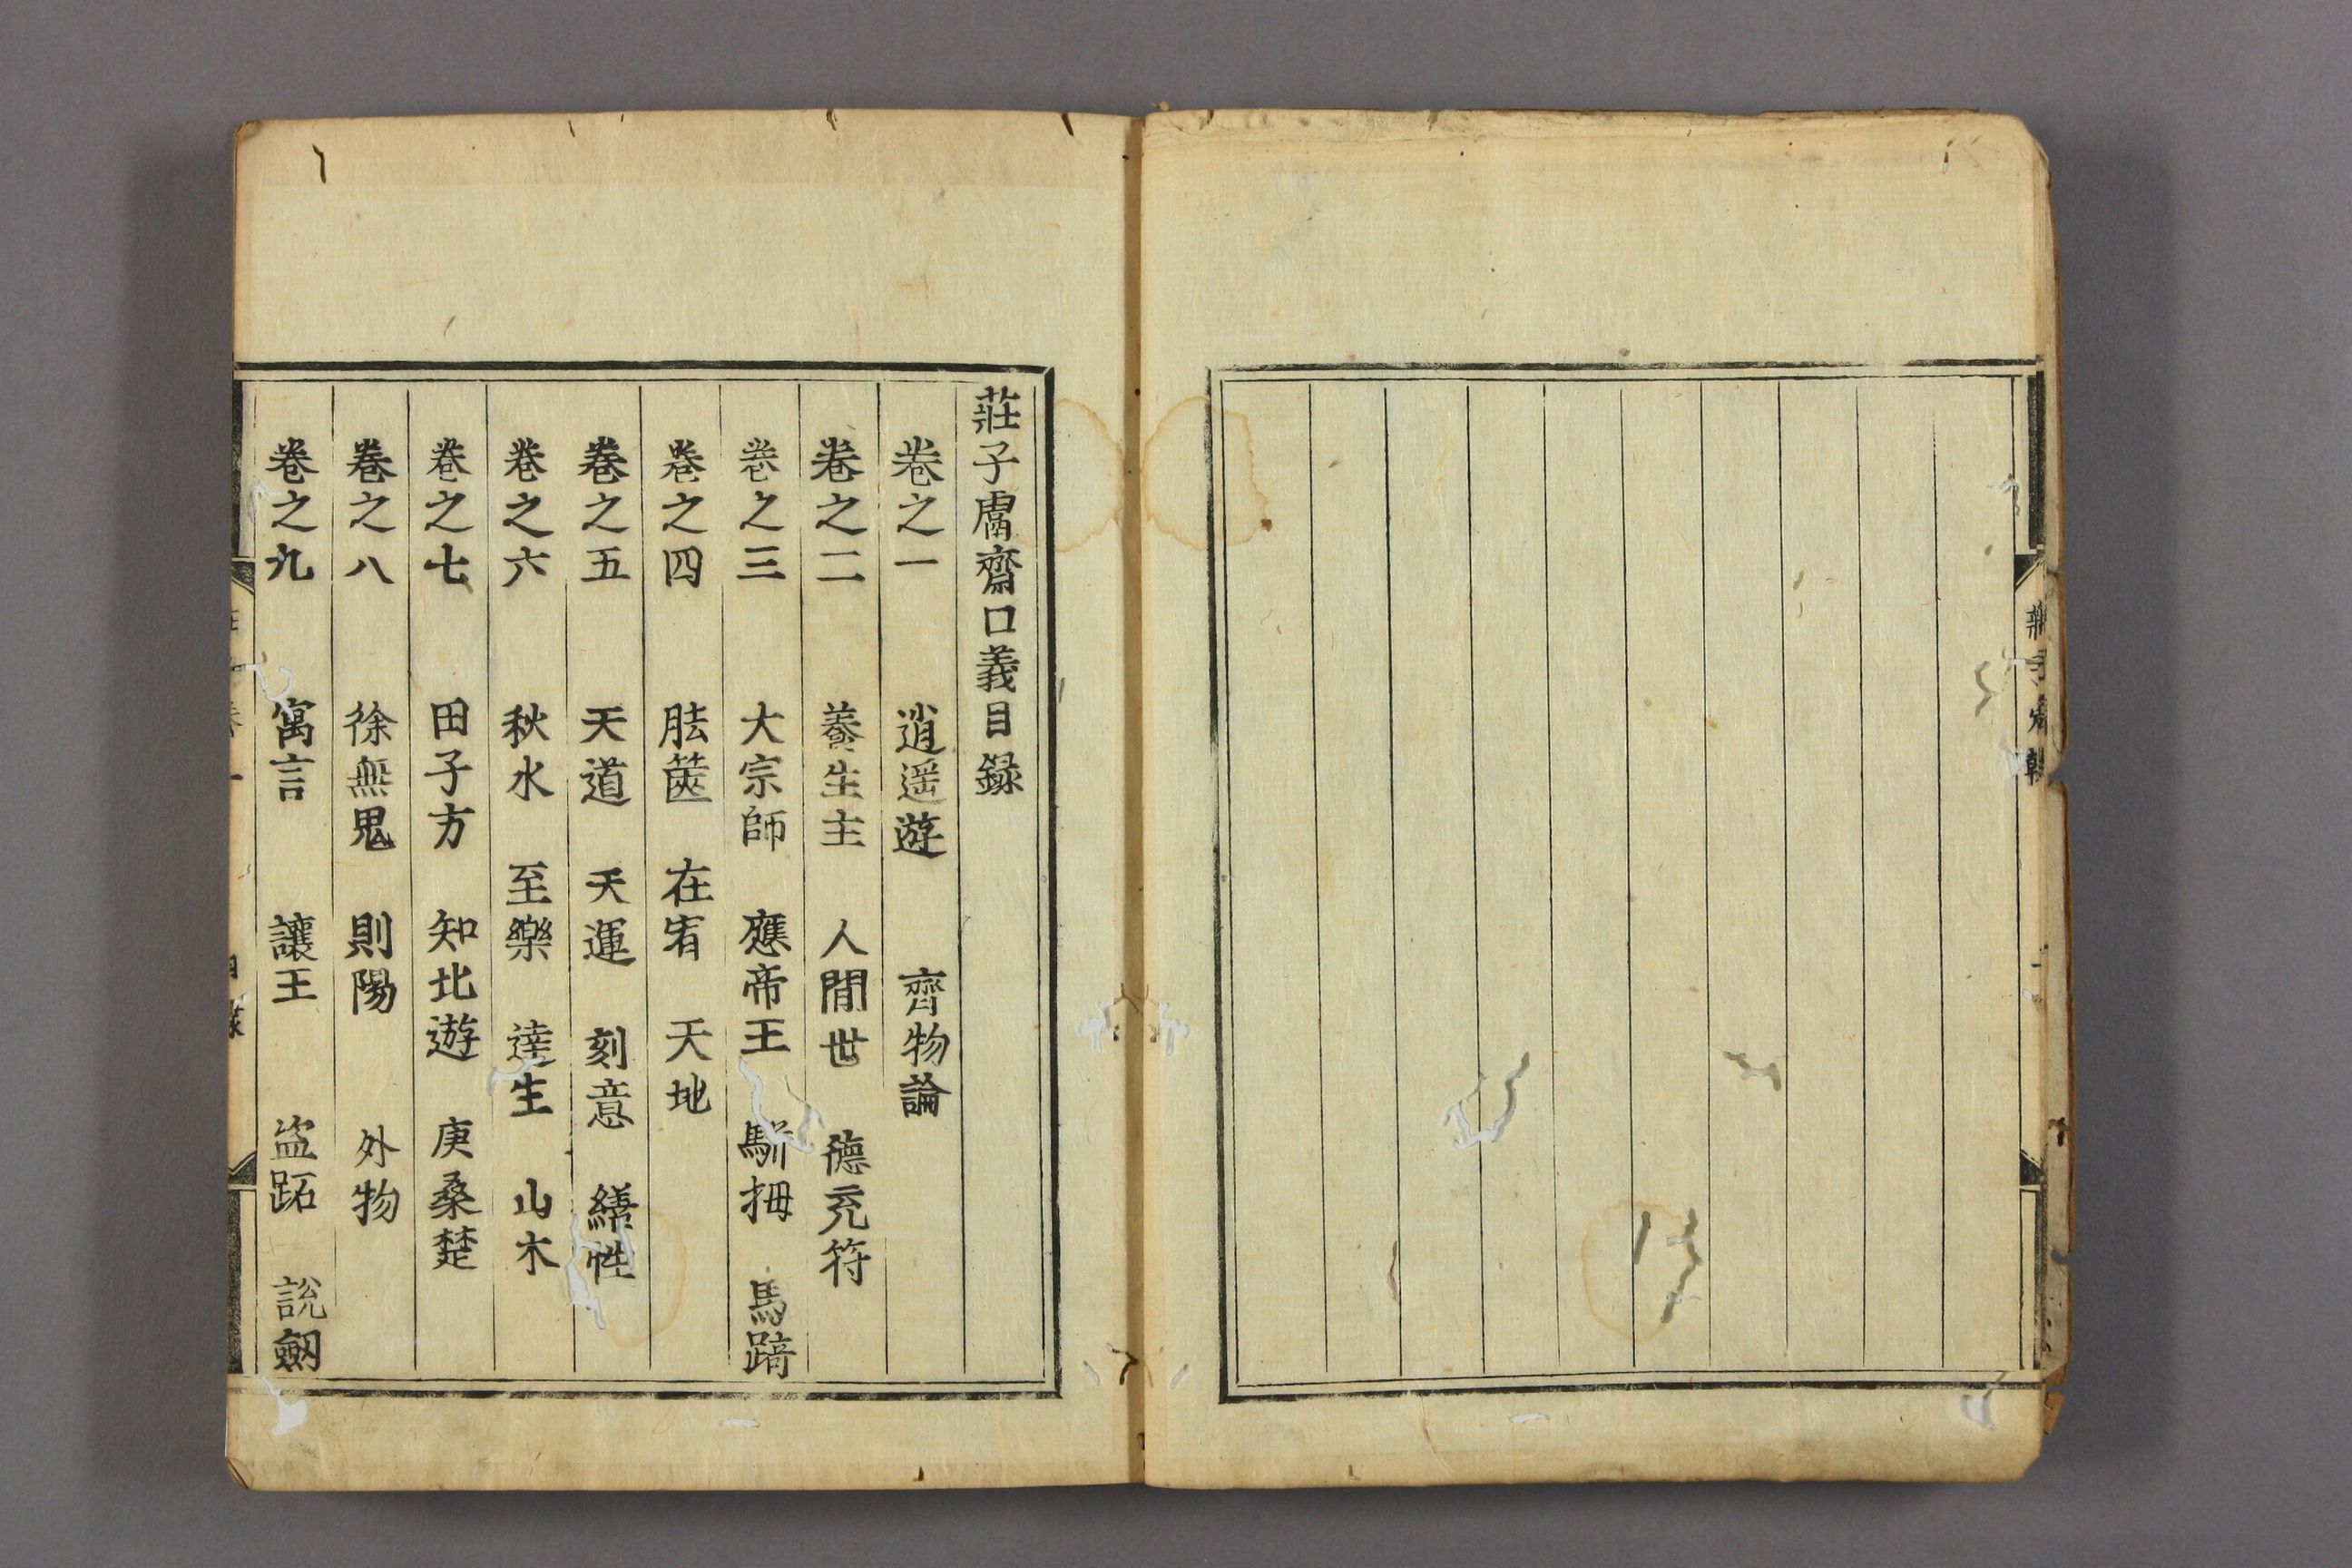 莊子鬳齋口義目録
卷之一 逍遥遊 齊物論
卷之二 養生主 人間世 德充符
卷之三 大宗師 應帝王 駢拇 馬蹄
卷之四 胠篋 在宥 天地
卷之五 天道 天運 刻意 繕性
卷之六 秋水 至樂 達生 山木
卷之七 田子方 知北遊 庚桑楚
卷之八 徐無鬼 則陽 外物
卷之九 寓言 讓王 盗跖 說劒